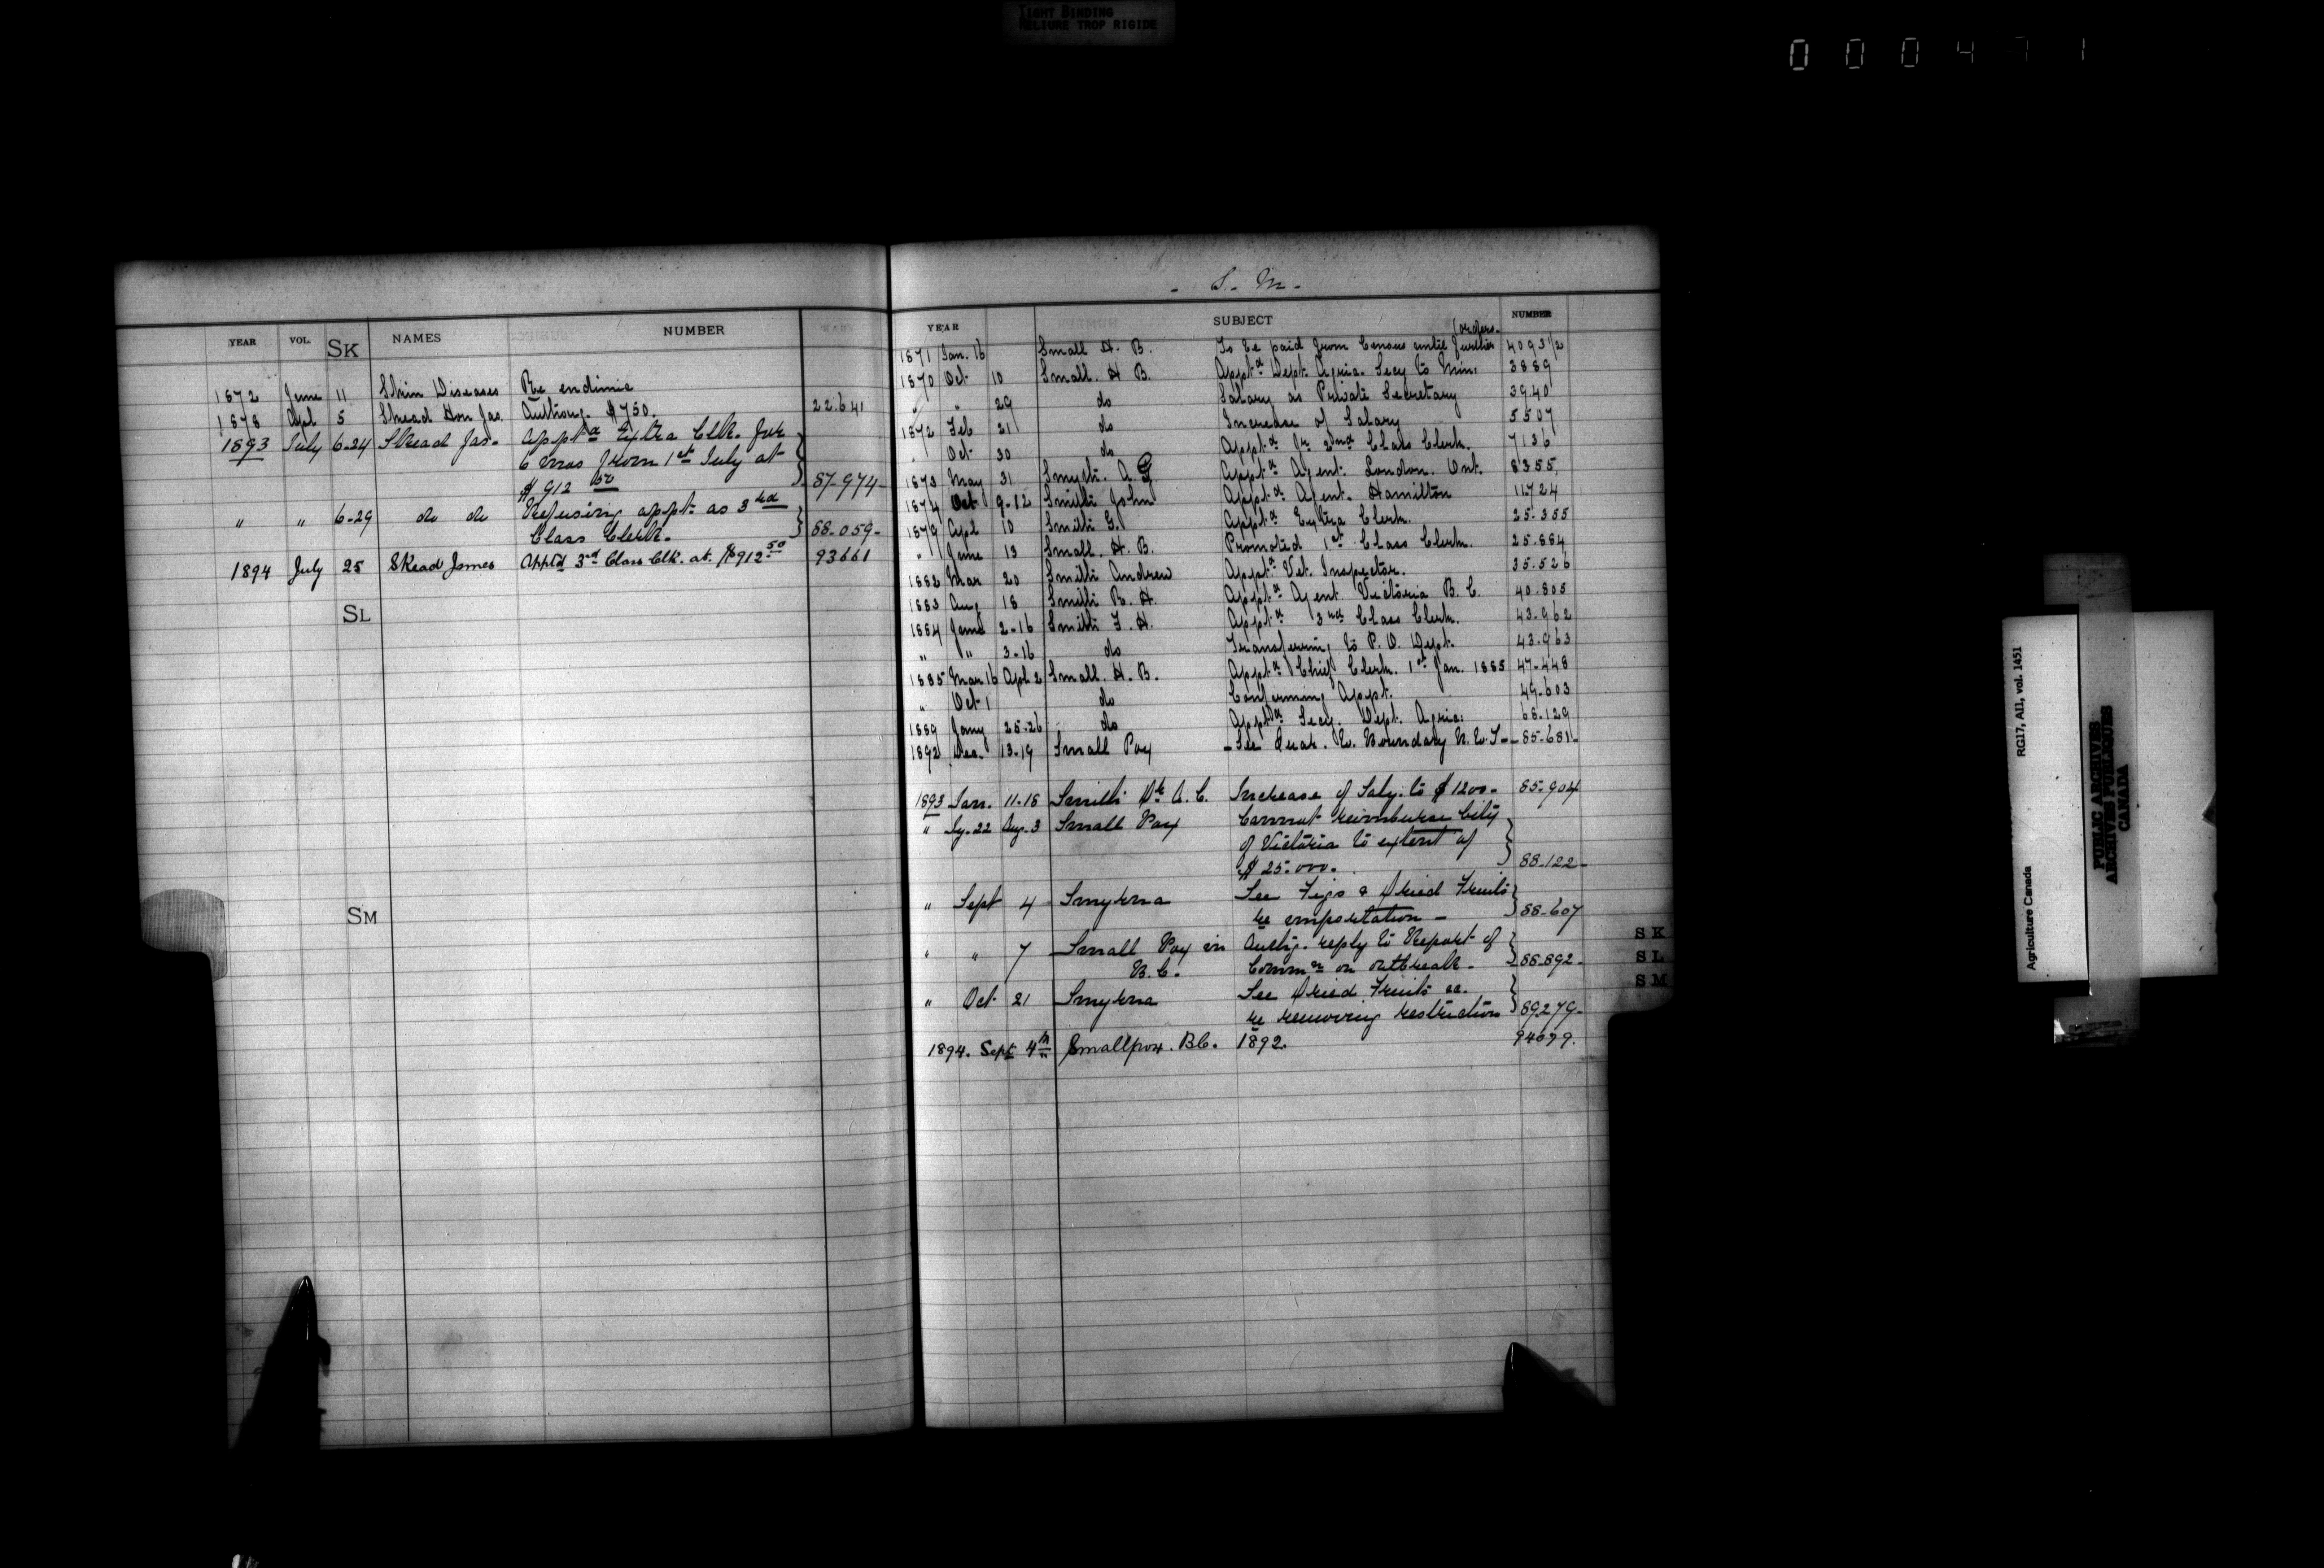 TIGHT BINDING
RELIURE TROP RIGIDE
000471
YEAR VOL. SK NAMES NUMBER
1872 June 11 Skin Diseases Re endimic
1878 Apl 5 Skead Hon Jas. Authong. $750. 22.641
1893 July 6-24 Skead Jas. Apptd Extra Clk. for
6 mos from 1st July at
$912 50 87-974-
" " 6-29 do do Refusing appt. as 3rd
Class Clerk. 88-059-
1894 July 25 Skead James Apptd 3rd Class Clk. at $912 50 93661
SL
SM
- S. M -
YEAR SUBJECT NUMBER
(orders.
1871 Jan. 16 Small H. B. To be paid from Census until further 4093 1/2
1870 Oct 10 Small. H B. Apptd Dept. Agric. Secy to Min. 3889
" " 29 do Salary as Private Secretary 39.40
1872 Feb 21 do Increase of Salary 5507
" Oct 30 do Apptd Jr. 2nd Class Clerk. 7136
1873 May 31 Smyth. A. G Apptd Agent. London. Ont. 8355
1874 Oct 9-12 Smith John Apptd Agent. Hamilton 11.724
1879 Apl 10 Smith G. Apptd Extra Clerk. 25.355
" June 13 Small. H. B. Promoted 1st Class Clerk. 25.884
1882 Mar 20 Smith Andrew Apptd Vet. Inspector. 35.526
1883 Aug 18 Smith R. H. Apptd Agent Victoria B. C. 40.805
1884 June 2-16 Smith F. H. Apptd 3rd Class Clerk. 43.962
" " 3-16 do Transferring to P. O. Dept. 43.963
1885 Mar 16 Apl. 2 Small. H. B. Apptd Chief Clerk. 1st Jan. 1885 47-448
" Oct 1 do Confirming Appt. 49-603
1889 Jany 25-26 do Apptd Secy. Dept. Agric. 68.129
1892 Dec. 13-19 Small Pox - See Quar. W. Boundary N. W. T - - 85-681-
1893 Jan. 11-18 Smith Dr. A. C. Increase of Saly. to $1200- 85-904
" Jy. 22 Aug. 3 Small Pox Cannot reimburse City
of Victoria to extent of
$25.000. 88-122-
" Sept 4 Smyrna See Figs & Dried Fruits
re importation - 88-607
" " 7 Small Pox in Authg. reply to Report of
B. C. Commn on outbreak. 88.892-
" Oct 21 Smyrna See Dried Fruits &c.
re removing restriction 89279-
1894. Sept 4th Smallpox. BC. 1892. 94079.
SK
SL
SM
RG17, AII, vol. 1451
Agriculture Canada
PUBLIC ARCHIVES
ARCHIVES PUBLIQUES
CANADA